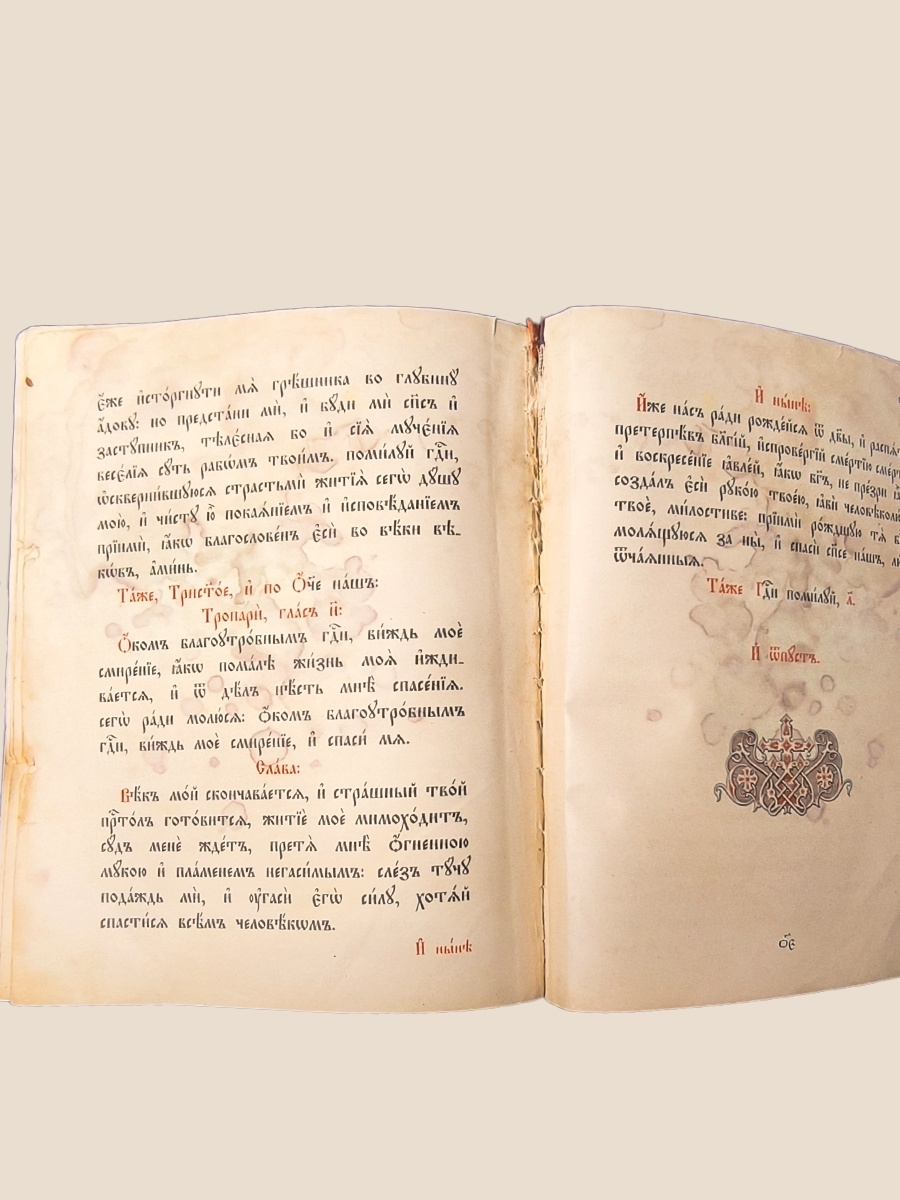 є҆́же и҆сто́ргнути мѧ̀ грѣ́шника во глꙋбинꙋ̀
а҆́довꙋ: но предста́ни мѝ, и҆ бꙋ́ди мѝ сп҃съ и҆
застꙋ́пникъ, тѣлє́снаѧ бо и҆ сїѧ̑ мꙋчє́нїѧ
весє́лїѧ сꙋ́ть рабѡ́мъ твои̑мъ. поми́лꙋй гд҇и,
ѡ҆скверни́вшꙋюсѧ страстьмѝ житїѧ̀ сегѡ̀ дꙋ́шꙋ
мою̀, и҆ чи́стꙋ ю҆̀ покаѧ́нїемъ и҆ и҆сповѣ́данїемъ
прїимѝ, ꙗ҆́кѡ благослове́нъ є҆сѝ во вѣ́ки вѣ-
кѡ́въ, а҆ми́нь.
Та́же, Трист҃о́е, и҆ по Ѻ҆́ч҃е на́шъ:
Тропарѝ, гла́съ и҃:
Ѻ҆́комъ благоꙋтро́бнымъ гд҇и, ви́ждь моѐ
смире́нїе, ꙗ҆́кѡ пома́лѣ жи́знь моѧ̀ и҆жди-
ва́етсѧ, и҆ ѿ дѣ́лъ нѣ́сть мнѣ̀ спасе́нїѧ.
сегѡ̀ ра́ди молю́сѧ: ѻ҆́комъ благоꙋтро́бнымъ
гд҇и, ви́ждь моѐ смире́нїе, и҆ спаси́ мѧ.
Сла́ва:
Вѣ́къ мо́й сконча́ваетсѧ, и҆ стра́шный тво́й
прⷭ҇то́лъ гото́витсѧ, житїѐ моѐ мимохо́дитъ,
сꙋ́дъ менѐ жде́тъ, претѧ̀ мнѣ̀ ѻ҆́гненною
мꙋ́кою и҆ пла́менемъ негаси́мымъ: сле́зъ тꙋ́чꙋ
пода́ждь мѝ, и҆ ᲂу҆гасѝ є҆гѡ̀ си́лꙋ, хотѧ́й
спасти́сѧ всѣ̑мъ человѣ́кѡмъ.
И҆ ны́нѣ
И҆ ны́нѣ:
И҆́же на́съ ра́ди рожде́йсѧ ѿ дв҃ы, и҆
претерпѣ́въ бл҃гі́й, и҆спрове́ргїй сме́ртїю
и҆ воскресе́нїе ꙗ҆вле́й, ꙗ҆́кѡ бг҃ъ, не пре́зри
созда́лъ є҆сѝ рꙋко́ю твое́ю, ꙗ҆вѝ
твоѐ, ми́лостиве: прїимѝ ро́ждшꙋю тѧ̀
молѧ́щꙋюсѧ за ны̀, и҆ спасѝ сп҃се на́шъ,
ѿча́ѧнныѧ.
Та́же Гд҇и поми́лꙋй, л҃.
И҆ ѿпꙋ́стъ.
ѻ҃є